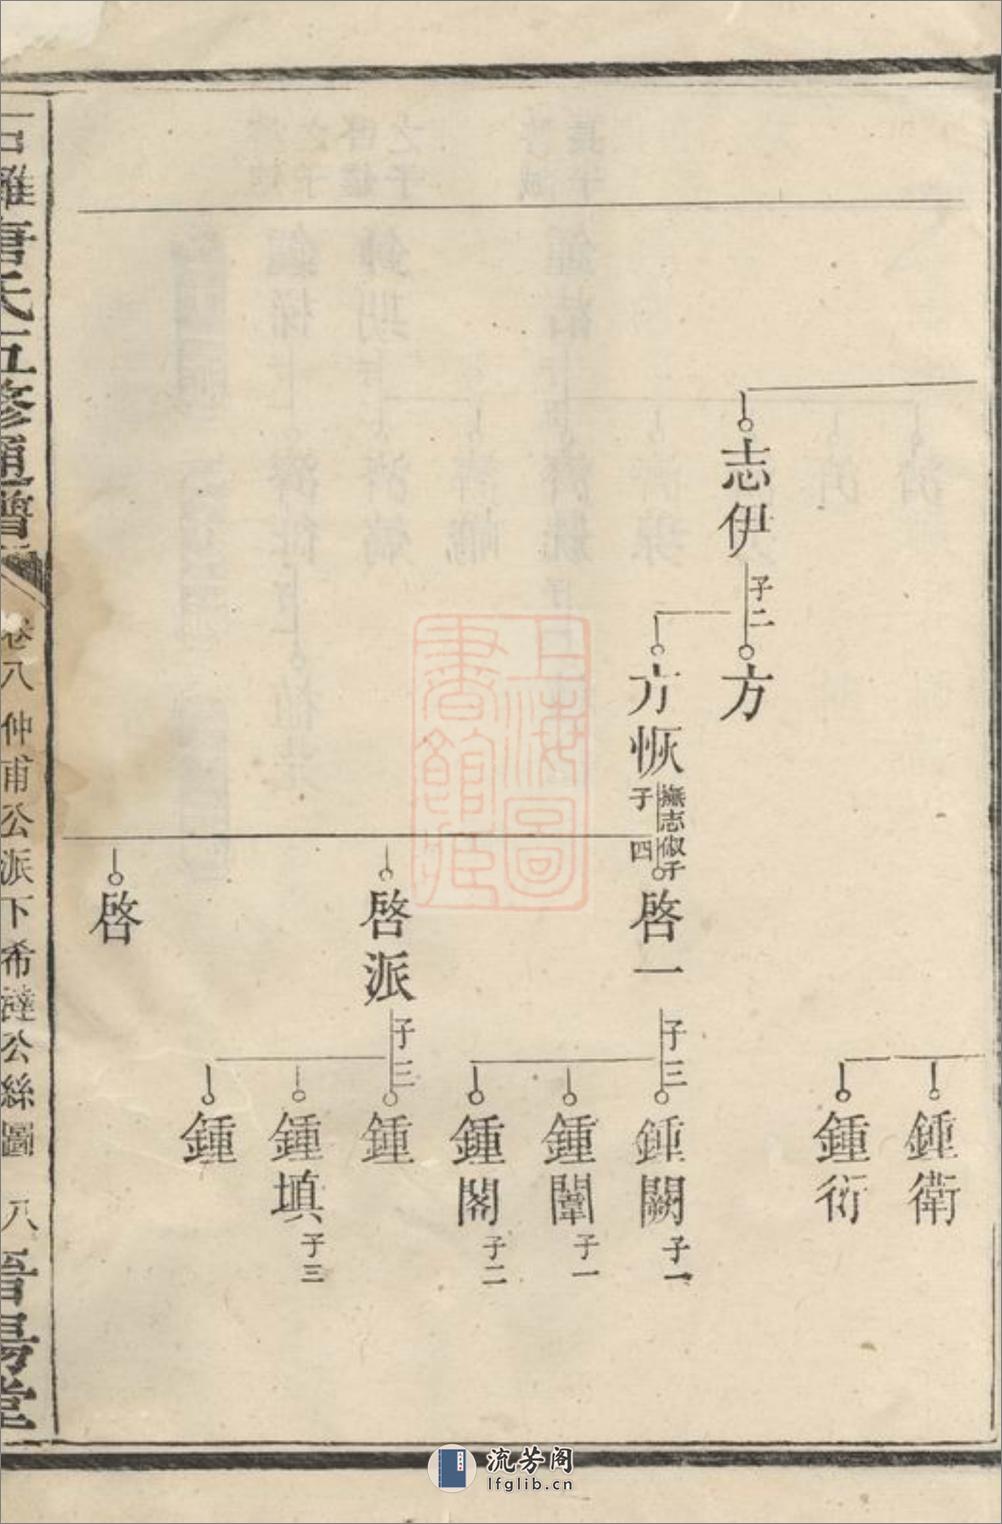 志伊
子二
方
方恢
撫志俶子
子四
啓一
子三
啓派
子三
啓
鍾衛
鍾衍
鍾闕
子一
鍾闈
子一
鍾閣
子二
鍾
鍾填
子三
鍾
唐氏五修通譜
卷八
仲甫公派下希達公絲圖
八
晋昜堂
上海圖書館藏
流芳阁
lfglib.cn